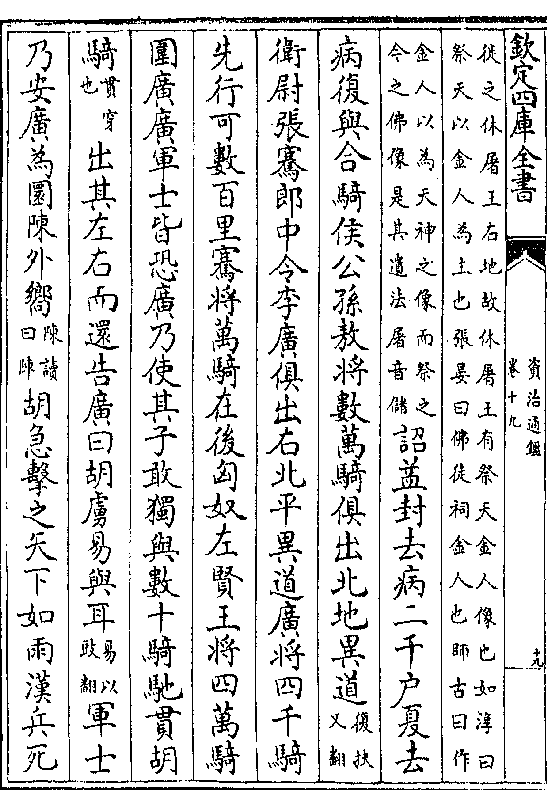 欽定四庫全書
資治通鑑
卷十九
十九
徙之休屠王右地故休屠王有祭天金人像也如淳曰
祭天以金人為主也張晏曰佛徒祠金人也師古曰作
金人以為天神之像而祭之
今之佛像是其遺法屠音儲
詔益封去病二千户夏去
病復與合騎侯公孫敖將數萬騎俱出北地異道
復扶
又翻
衛尉張騫郎中令李廣俱出右北平異道廣將四千騎
先行可數百里騫將萬騎在後匈奴左賢王將四萬騎
圍廣廣軍士皆恐廣乃使其子敢獨與數十騎馳貫胡
騎
貫穿
也
出其左右而還告廣曰胡虜易與耳
易以
豉翻
軍士
乃安廣為圜陳外嚮
陳讀
曰陣
胡急擊之矢下如雨漢兵死